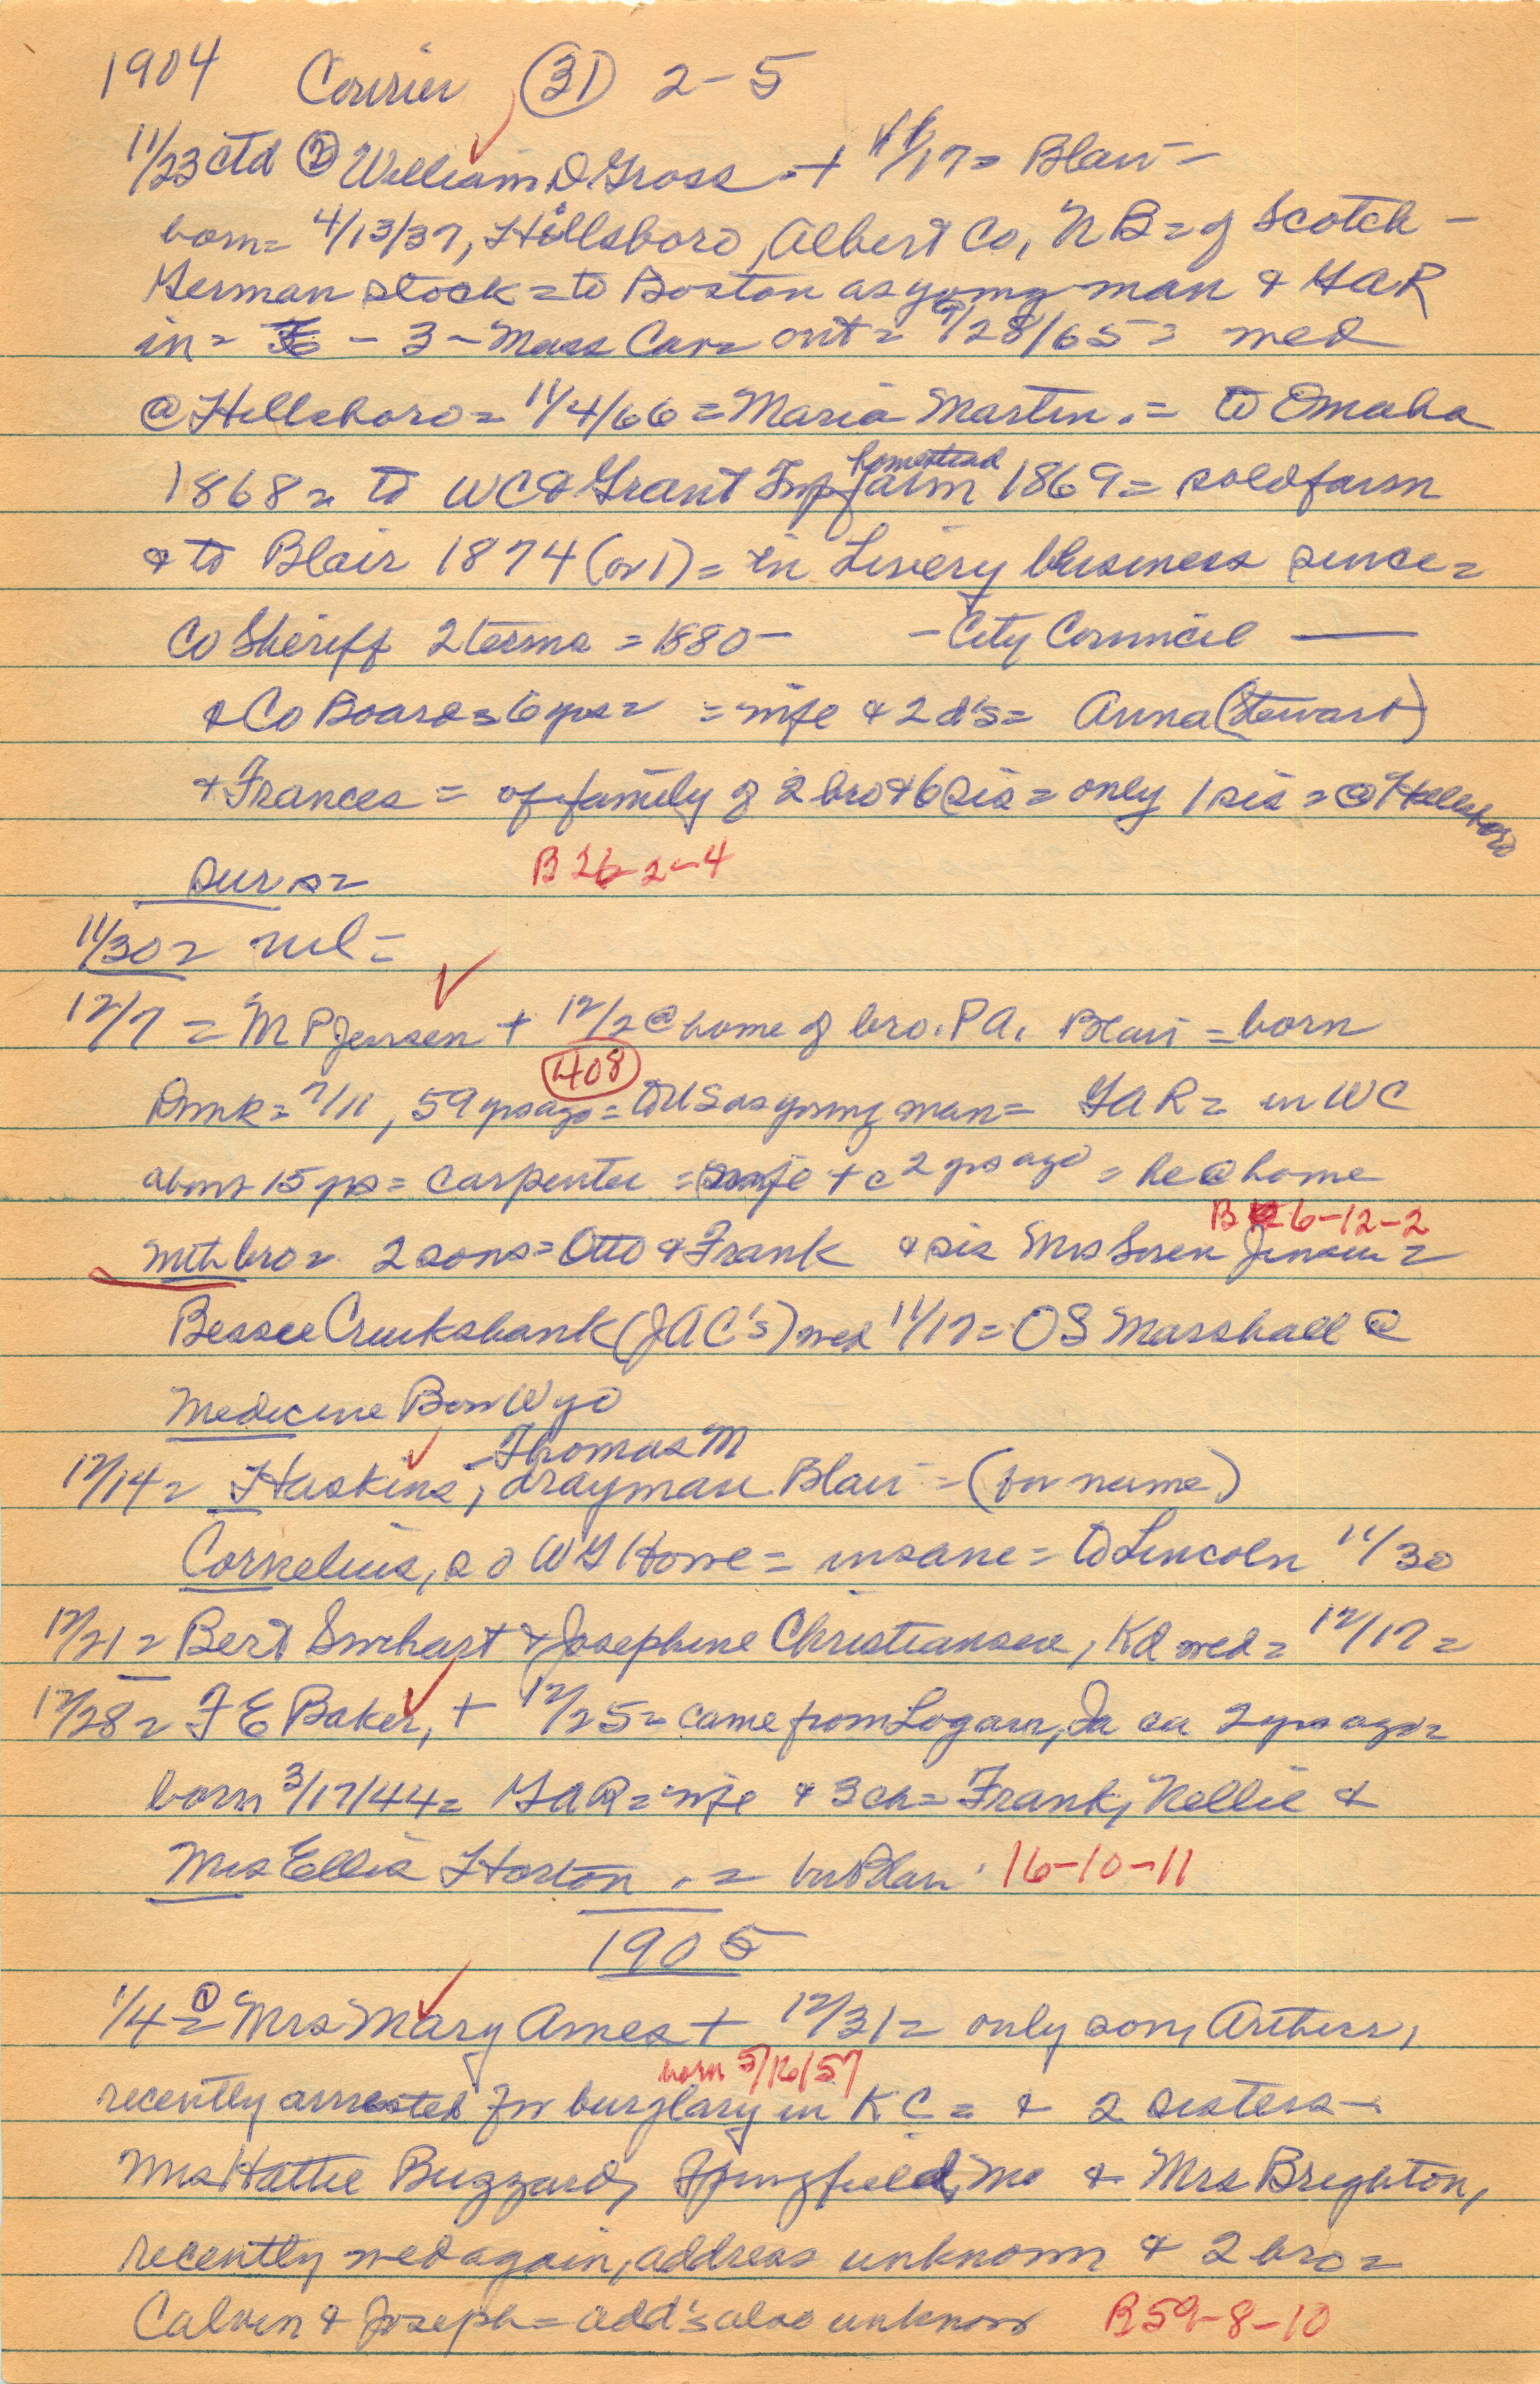 1904 Courier (31) 2-5
11/23 ctd (2) William D Gross + 11/17 = Blair -
born = 4/13/37, Hillsboro, Albert Co, N B = of Scotch -
German stock = to Boston as young man & GAR
in = - 3 - Mass Cav = out = 9/28/65 = wed
@ Hillsboro = 11/4/66 = Maria Martin. = to Omaha
homestead
1868 = to WC & Grant Twp farm 1869 = sold farm
& to Blair 1874 (or 1) = in Livery business since =
Co Sheriff 2 terms = 1880 - - City Council —
& Co Board = 6 yrs = = wife & 2 d's = Anna (Stewart)
& Frances = of family of 2 bro & 6 sis = only 1 sis = @ Hillsboro
surs = B 26-2-4
11/30 = nil =
12/7 = M P Jensen + 12/2 @ home of bro. P A. Blair = born
408
Dmk = 7/11, 59 yrs ago = to US as young man = GAR = in WC
about 15 yrs = carpenter = wife + c 2 yrs ago = he @ home
B 26-12-2
with bro = 2 sons = Otto & Frank & sis Mrs Soren Jensen =
Bessee Cruikshank (JAC's) wed 11/17 = OS Marshall @
Medicine Bow Wyo
Thomas M
12/14 = Haskins, drayman Blair = (for name)
Cornelius, s o WG Howe = insane = to Lincoln 11/30
12/21 = Bert Swihart & Josephine Christiansen, Kd wed = 12/17 =
12/28 = F E Baker, + 12/25 = came from Logan, Ia ca 2 yrs ago =
born 3/17/44 = GAR = wife & 3 ch = Frank, Nellie &
Mrs Ellis Horton . = bur Blair 16-10-11
1905
1/4 = (1) Mrs Mary Ames + 12/31 = only son, Arthur,
born 5/16/57
recently arrested for burglary in K C = & 2 sisters -
Mrs Hattie Buzzard, Springfield, Mo & Mrs Brighton,
recently wed again, address unknown & 2 bro =
Calvin & Joseph = add's also unknown B 59-8-10